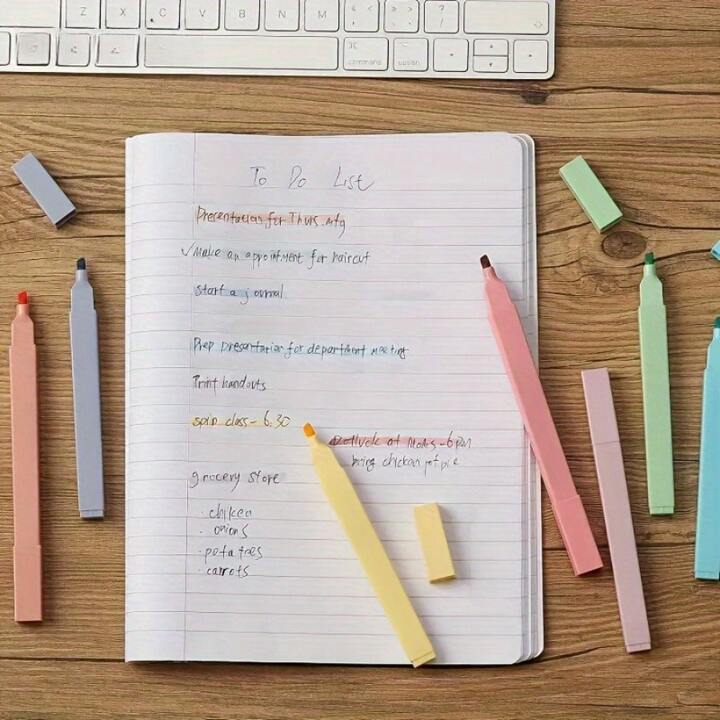 Z X C V B N M < , > . ? /
command option
To Do List
Presentation for Thurs. mtg
✓ Make an appointment for haircut
start a journal
Prep presentation for department meeting
Print handouts
spin class - 6:30
Potluck at Moms - 6pm
bring chicken pot pie
grocery store
· chiken
· onions
· potatoes
· carrots